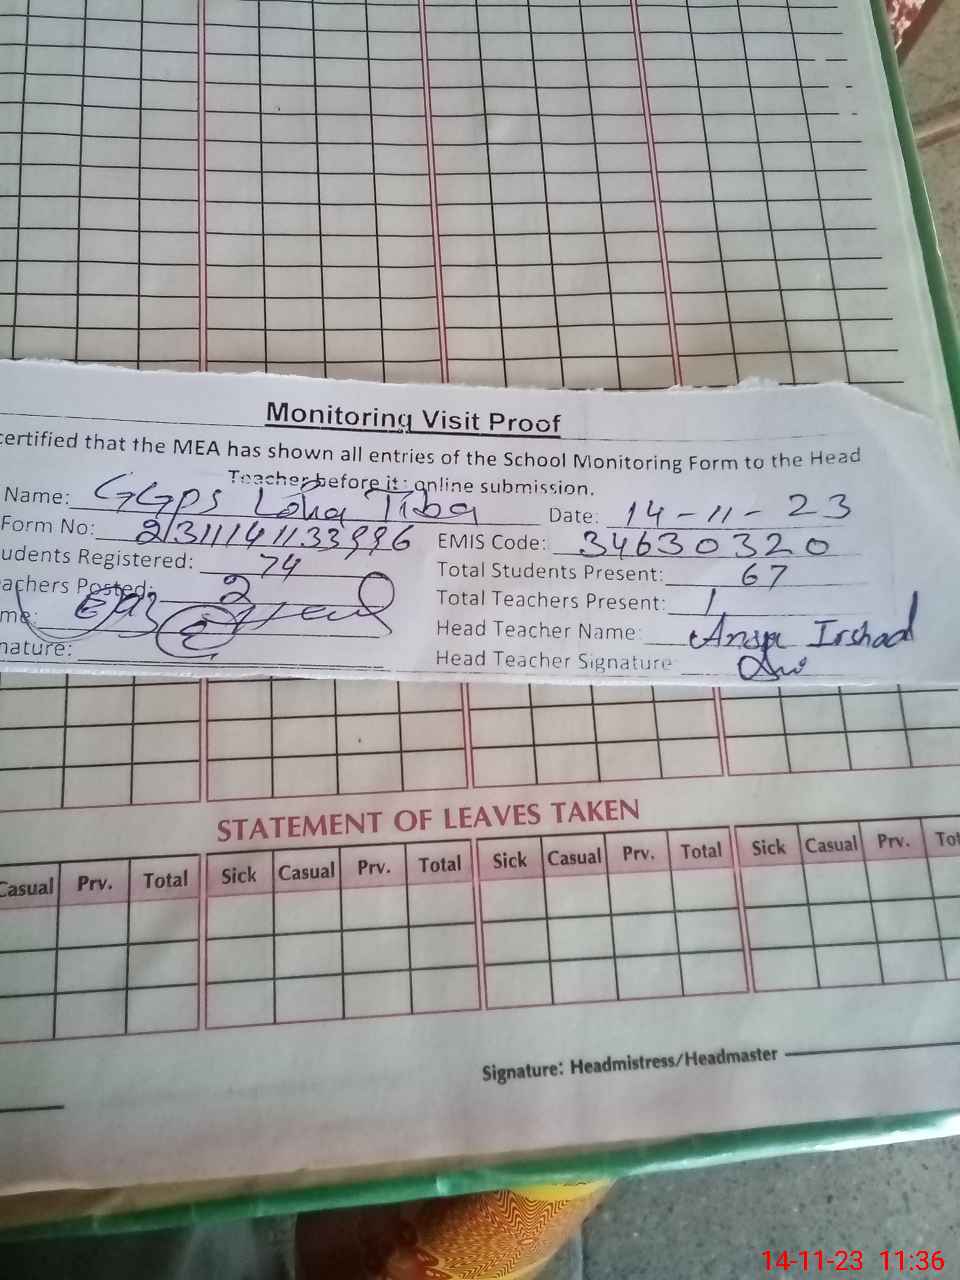 Monitoring Visit Proof
certified that the MEA has shown all entries of the School Monitoring Form to the Head
Teacher before it's online submission.
Name: GGPS Loha Tiba Date: 14-11-23
Form No: EMIS Code: 34630320
udents Registered: 74 Total Students Present: 67
achers Posted: 2 Total Teachers Present: 1
me: Head Teacher Name: Irshad
nature: Head Teacher Signature:
STATEMENT OF LEAVES TAKEN
Casual Prv. Total Sick Casual Prv. Total Sick Casual Prv. Total Sick Casual Prv. Tot
Signature: Headmistress/Headmaster
14-11-23 11:36